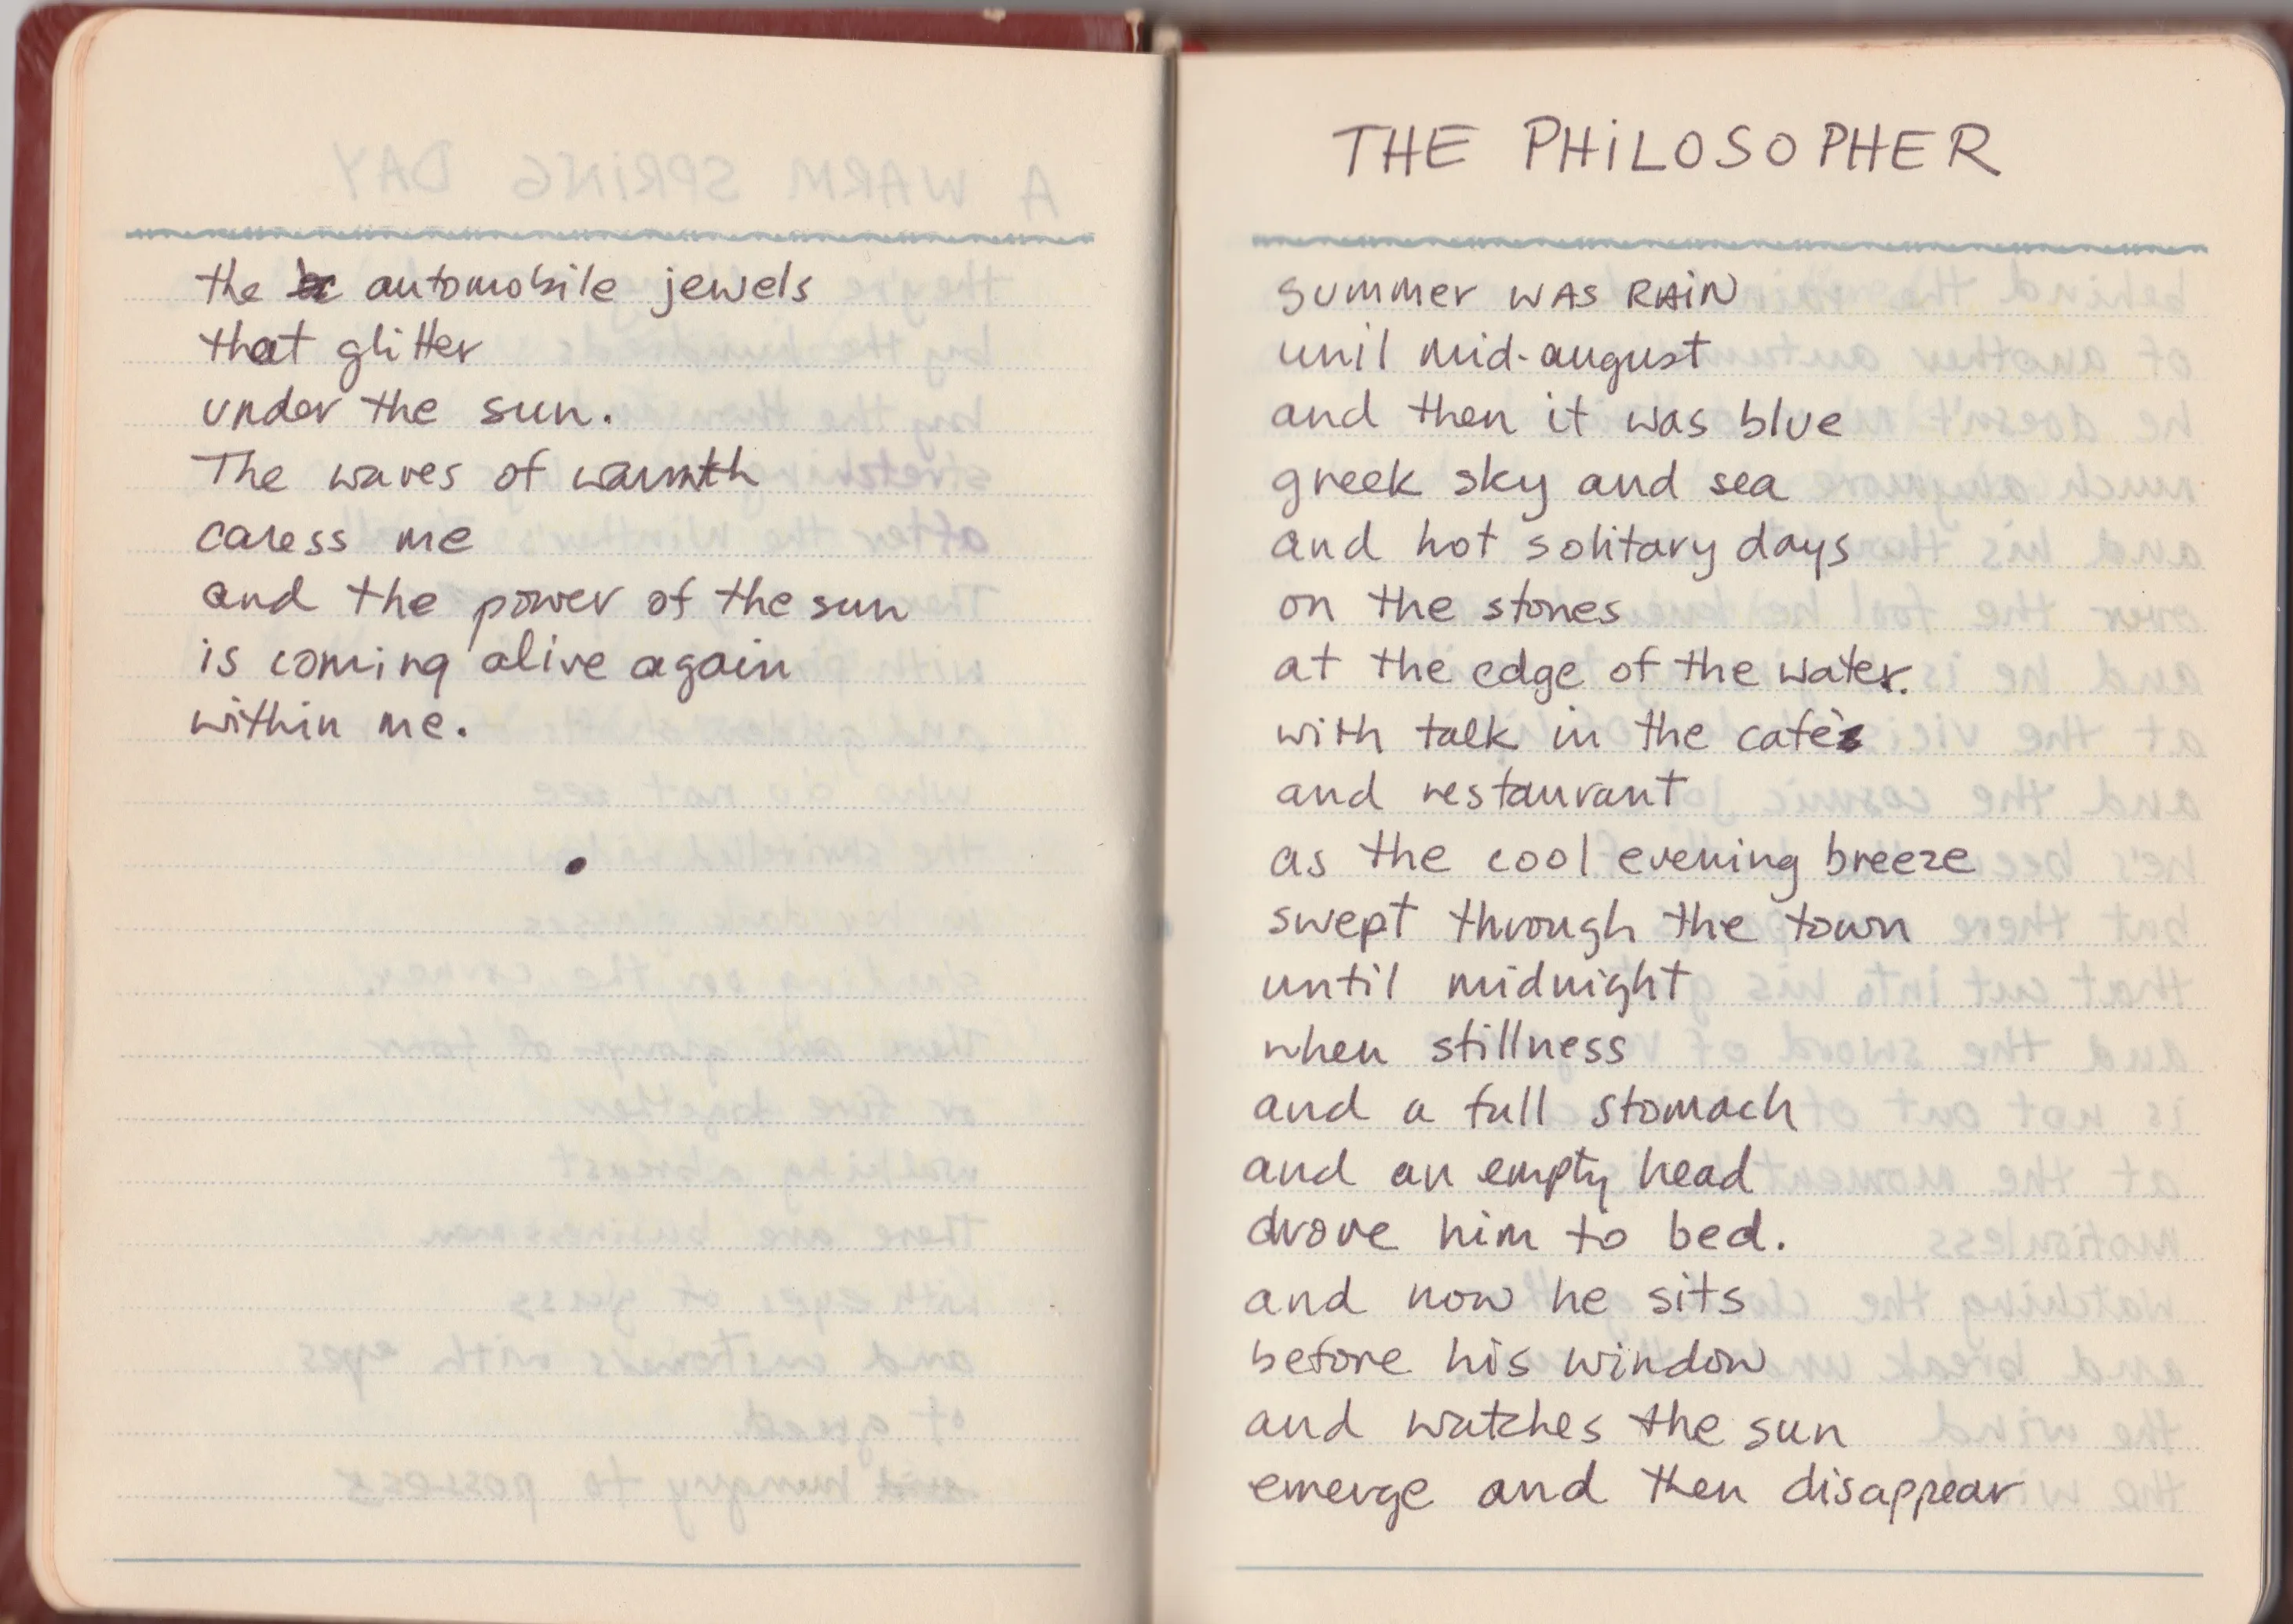 the automobile jewels
that glitter
under the sun.
The waves of warmth
caress me
and the power of the sun
is coming alive again
within me.
THE PHiLOSOPHER
summer WAS RAiN
unil mid-august
and then it was blue
greek sky and sea
and hot solitary days
on the stones
at the edge of the water.
with talk in the cafés
and restaurant
as the cool evening breeze
swept through the town
until midnight
when stillness
and a full stomach
and an empty head
drove him to bed.
and now he sits
before his window
and watches the sun
emerge and then disappear